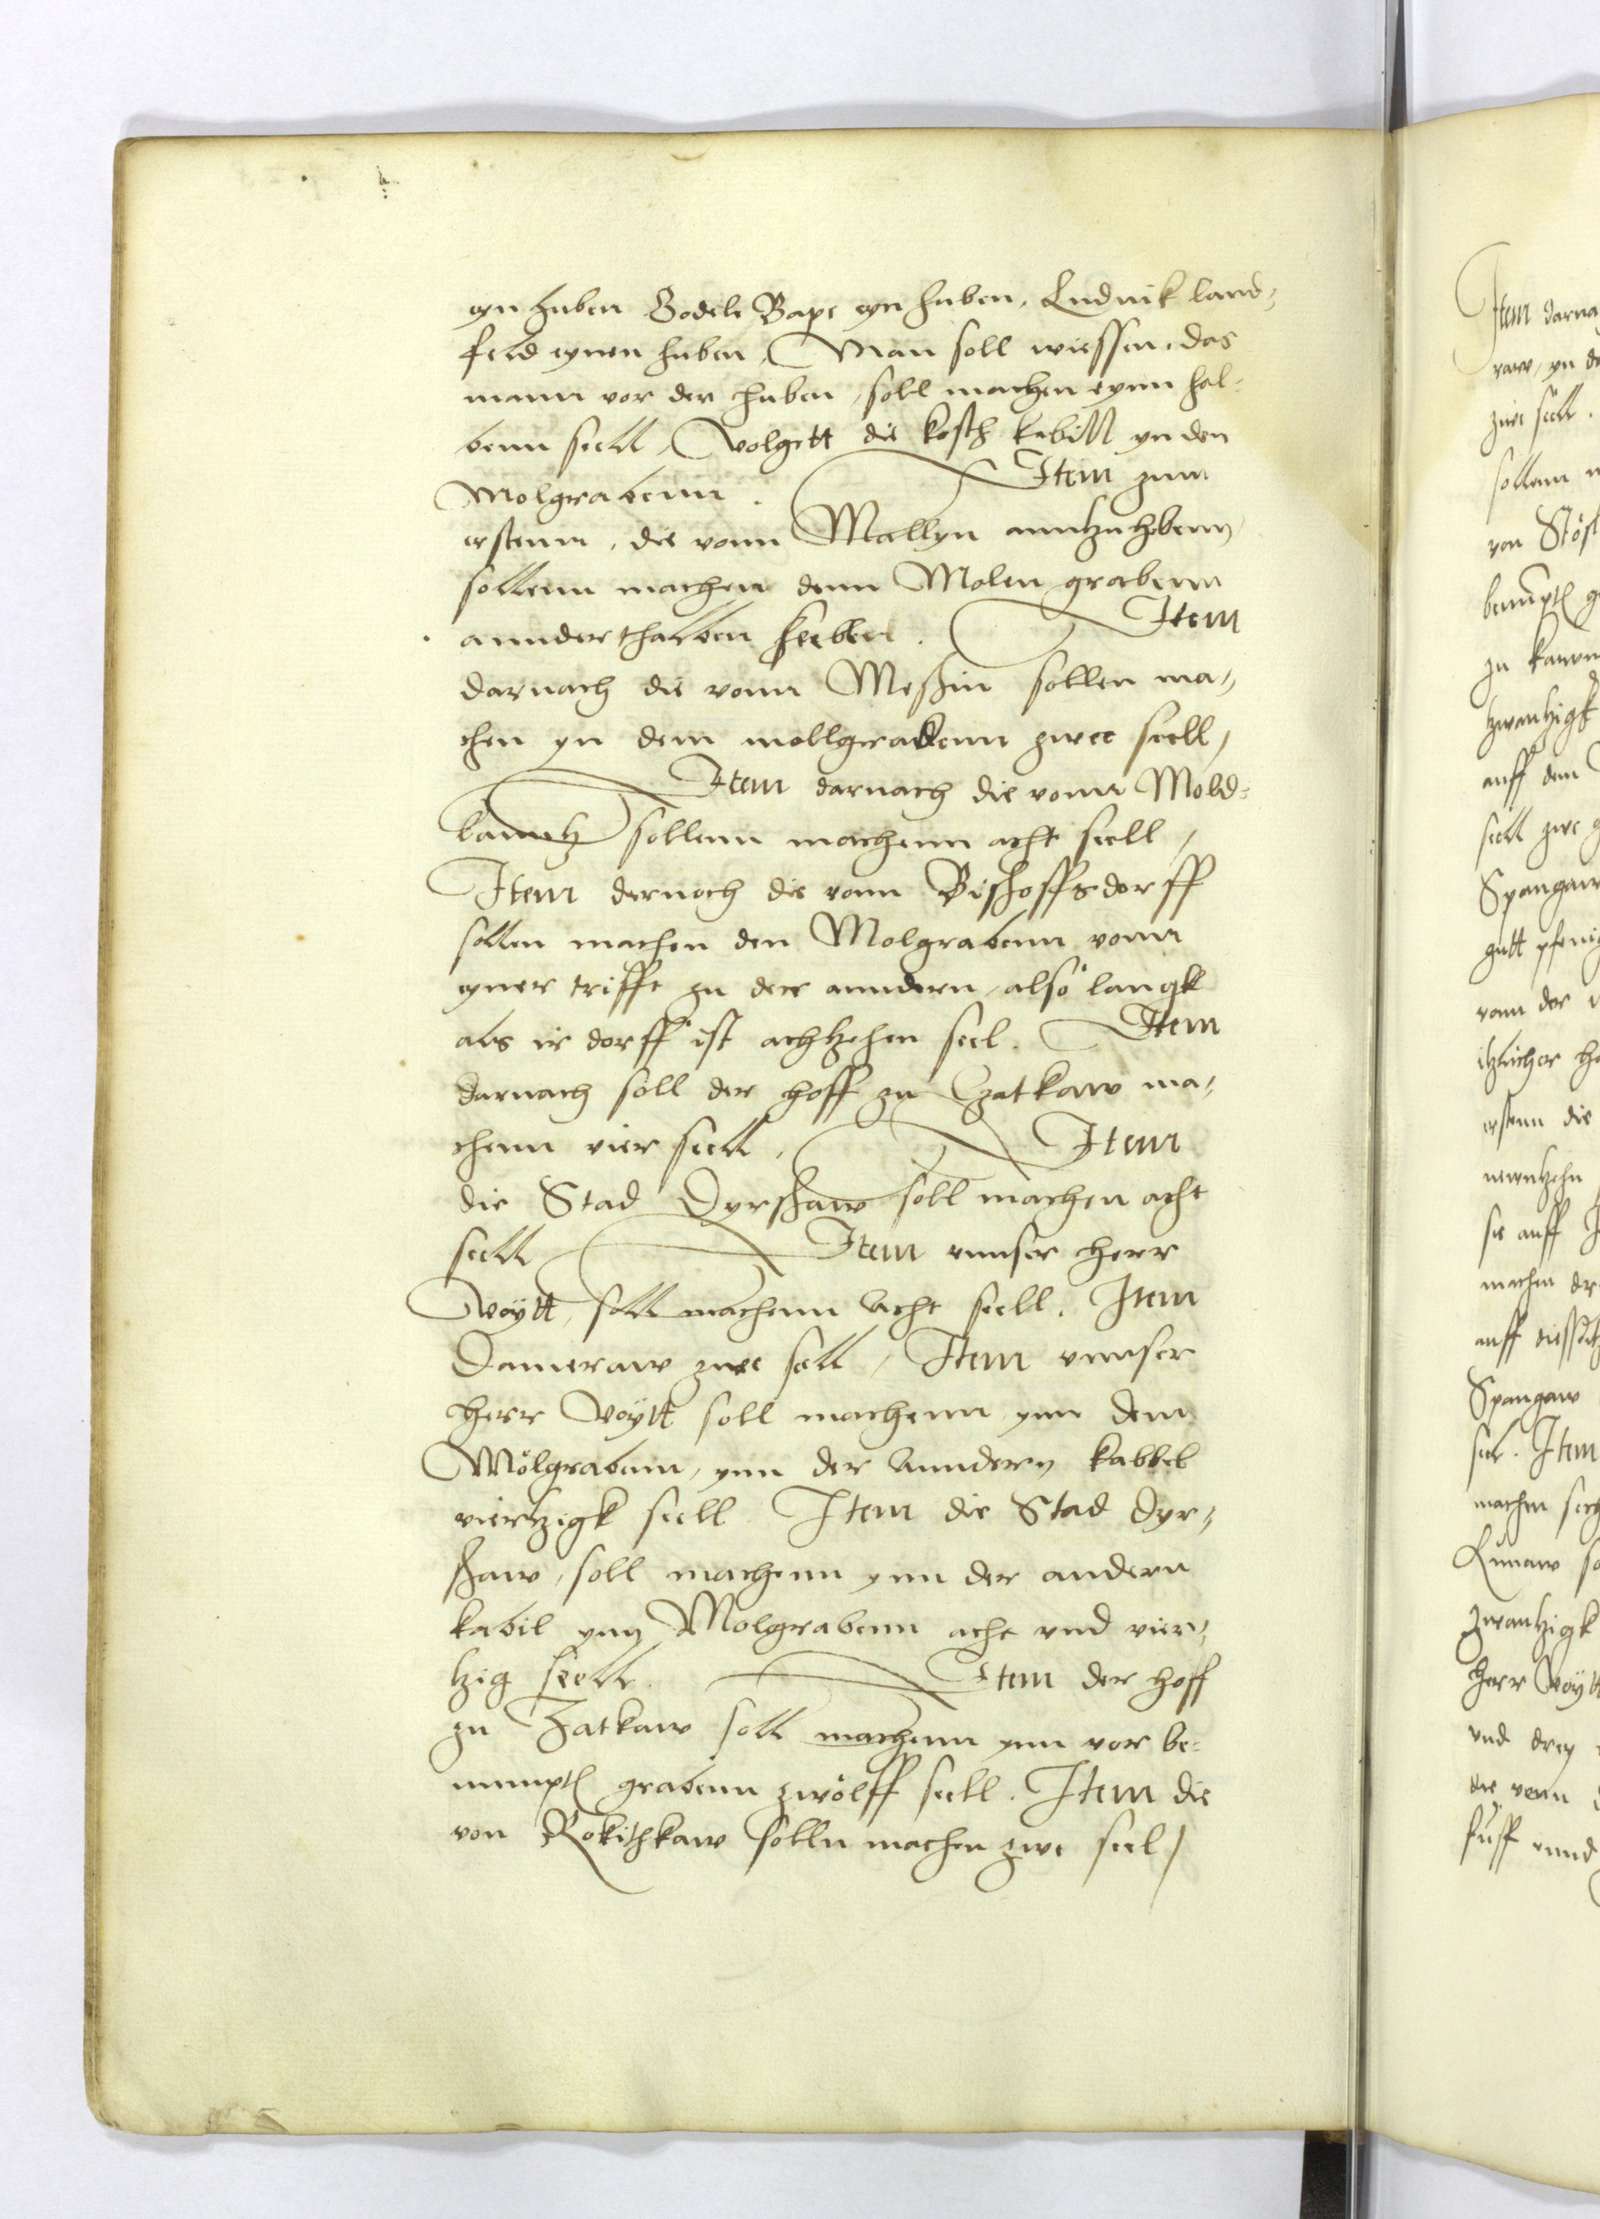 eyn huben Godele Pape eyn huben, Ludnik land-
feld eynen huben, Man soll wiessen, das
mann vor der huben, soll machen eynn hal-
benn seell, Volgett die kosth kabill yn den
Molgrabenn. Item zum
erstenn, die vonn Mallyn anntzuhebenn,
sollenn machen denn Molen grabenn
annderthalben seelen. Item
darnach die vonn Meßin sollen ma-
chen yn dem mollgrabenn zwee seell,
Item darnach die vonn Mold-
banntz sollenn machenn acht seell,
Item dernoch die vonn Bischoffsdorff
sollen machen den Molgrabenn vonn
eyner trifft zu der anndern, also langk
als ir dorff ist achtzehen seel. Item
darnach soll der hoff zu Czatkaw ma-
chenn vier seell. Item
die Stad Dyrschaw soll machen acht
seell Item unnser herr
Voytt, soll machenn Acht seell. Item
Dameraw zwee seell, Item unnser
herr Voytt soll machenn ynn dem
Molgrabenn, ynn der Anndern kabbel
viertzigk seell Item die Stad Dyr-
schaw, soll machenn ynn der andern
kabil ynn Molgrabenn acht und vier-
tzig seell. Item der hoff
zu Zatkaw soll machenn ynn vor be-
numpten grabenn zwolff seell. Item die
von Rokithkaw solln machen zwe seel,
Item darna
raw, yn de
zwe seell.
sollenn
zu
tzwantzigk
auff dem
seell zwe
Spangaw
gutt pfenig
vonn der
itzlicher
erstenn die
newntzehn
sie auff
machen
auff
Spangaw
seel. Item
machen
zwantzigk
herr Voytt
und drey
die vonn
fuff unnd